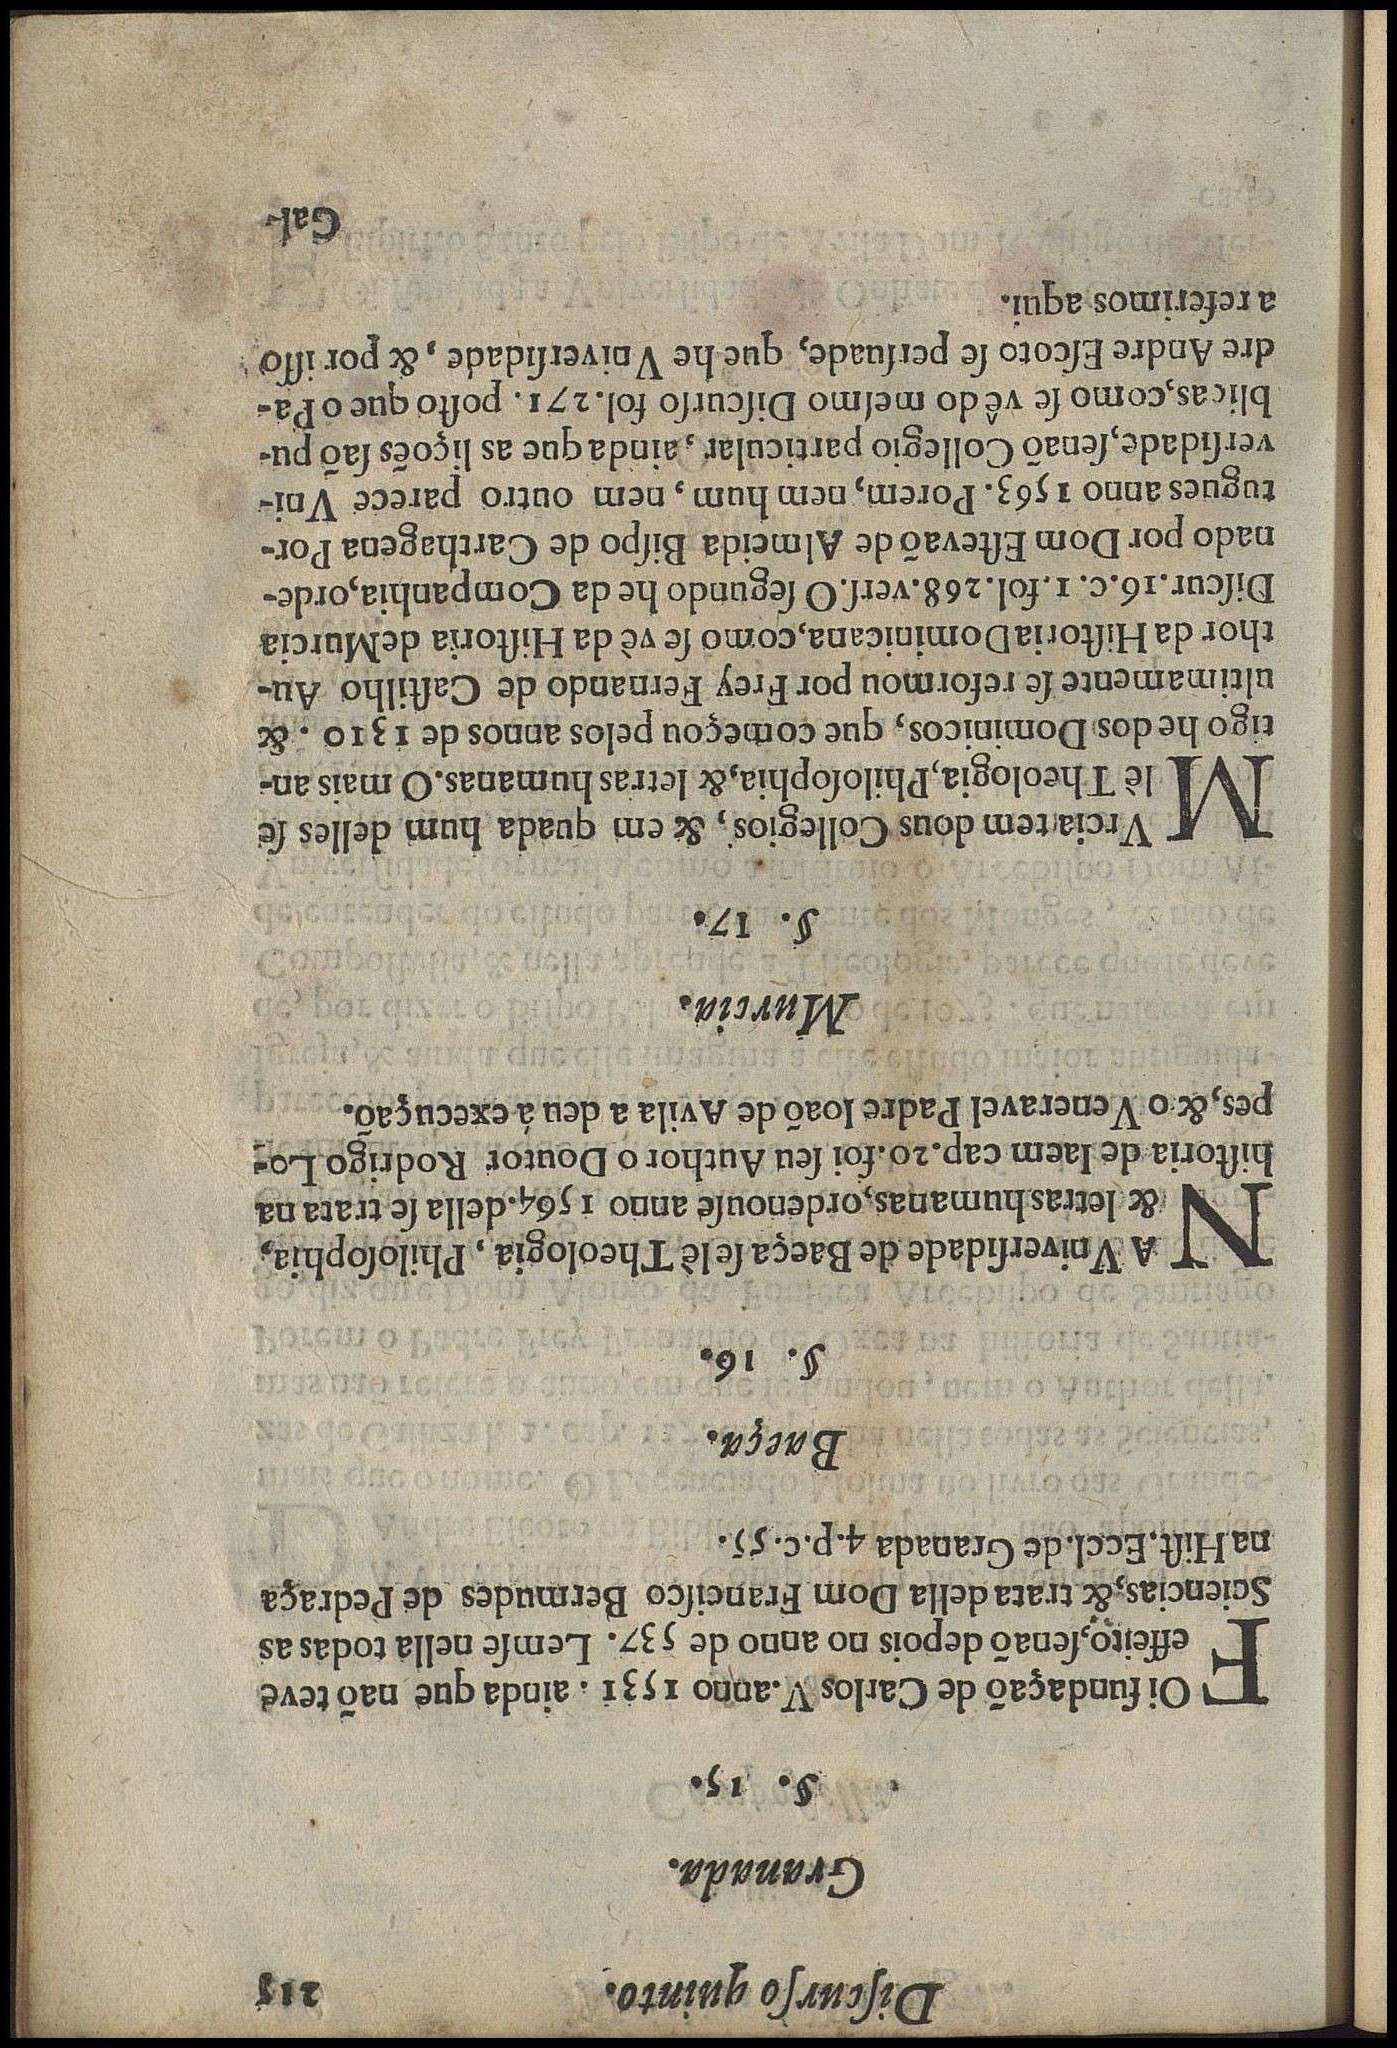 Diſcurſo quinto. 215
Granada.
§. 15.
FOi fundaçaõ de Carlos V. anno 1531. ainda que naõ teve
effeito, ſenaõ depois no anno de 537. Lemſe nella todas as
Sciencias, & trata della Dom Franciſco Bermudes de Pedraça
na Hiſt. Eccl. de Granada 4. p. c. 55.
Baeça.
§. 16.
NA Vniverſidade de Baeça ſe lè Theologia, Philoſophia,
& letras humanas, ordenouſe anno 1564. della ſe trata na
hiſtoria de Iaem cap. 20. foi ſeu Author o Doutor Rodrigo Lo-
pes, & o Veneravel Padre Ioaõ de Avila a deu á execuçaõ.
Murcia.
§. 17.
MVrcia tem dous Collegios, & em quada hum delles ſe
lè Theologia, Philoſophia, & letras humanas. O mais an-
tigo he dos Dominicos, que começou pelos annos de 1310. &
ultimamente ſe reformou por Frey Fernando de Caſtilho Au-
thor da Hiſtoria Dominicana, como ſe vè da Hiſtoria de Murcia
Diſcur. 16. c. 1. fol. 268. verſ. O ſegundo he da Companhia, orde-
nado por Dom Eſtevaõ de Almeida Biſpo de Carthagena Por-
tugues anno 1563. Porem, nem hum, nem outro parece Vni-
verſidade, ſenaõ Collegio particular, ainda que as liçoẽs ſaõ pu-
blicas, como ſe vê do meſmo Diſcurſo fol. 271. poſto que o Pa-
dre Andre Eſcoto ſe perſuade, que he Vniverſidade, & por iſſo
a referimos aqui.
Gal-